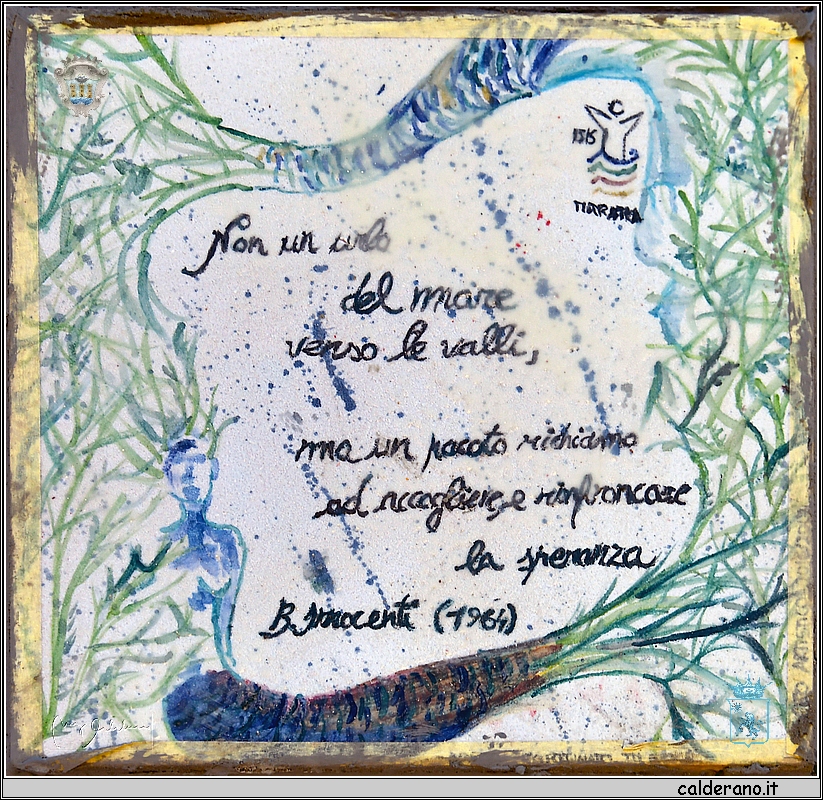 ISIS
MARATEA
Non un urlo
del mare
verso le valli,
ma un pacato richiamo
ad accogliere e rinfrancare
la speranza
B. Innocenti (1964)
calderano.it